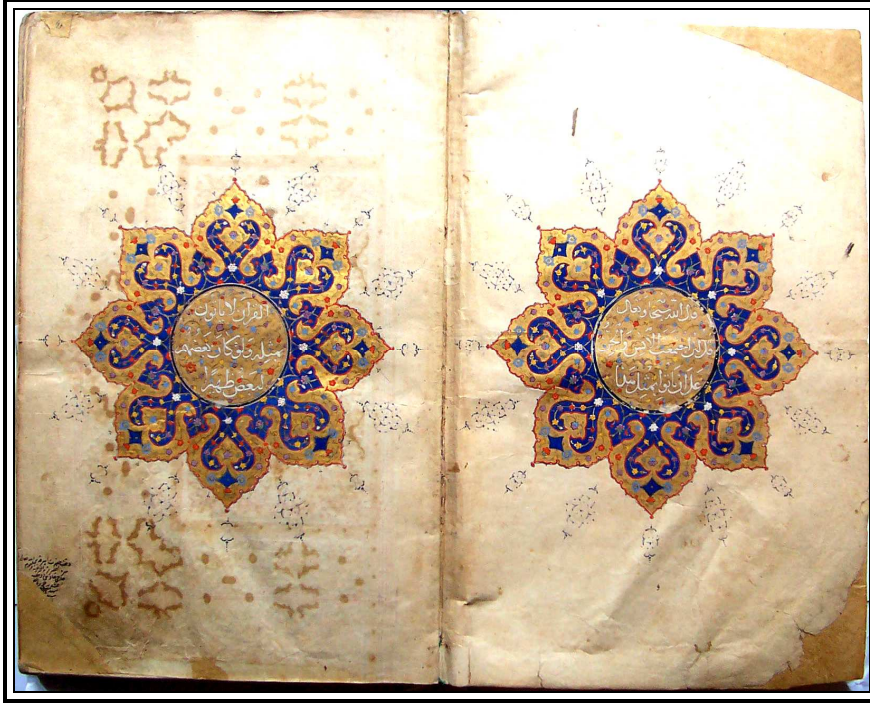 قال الله سبحانه وتعالى
قل لئن اجتمعت الانس والجن
على ان يأتوا بمثل هذا
القرآن لا يأتون
بمثله ولو كان بعضهم
لبعض ظهيرا